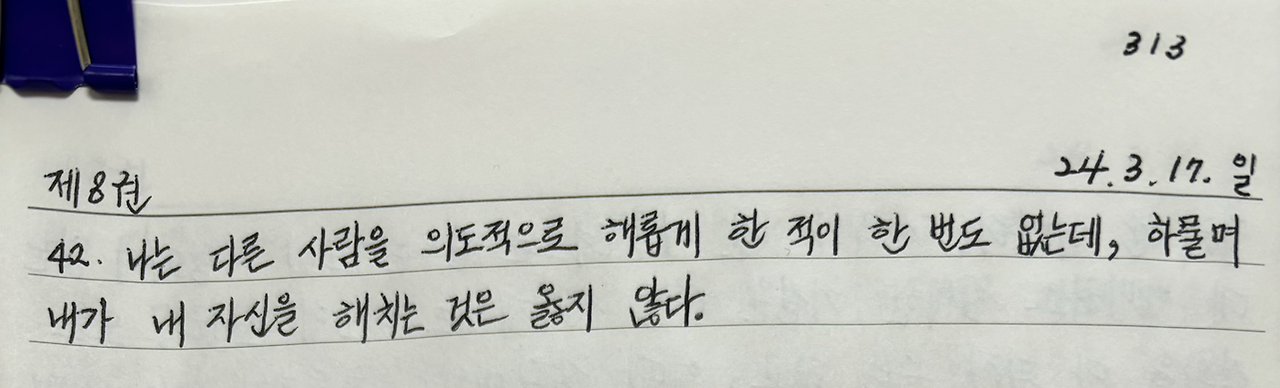 313
제8권
24.3.17. 일
42. 나는 다른 사람을 의도적으로 해롭게 한 적이 한 번도 없는데, 하물며
내가 내 자신을 해치는 것은 옳지 않다.